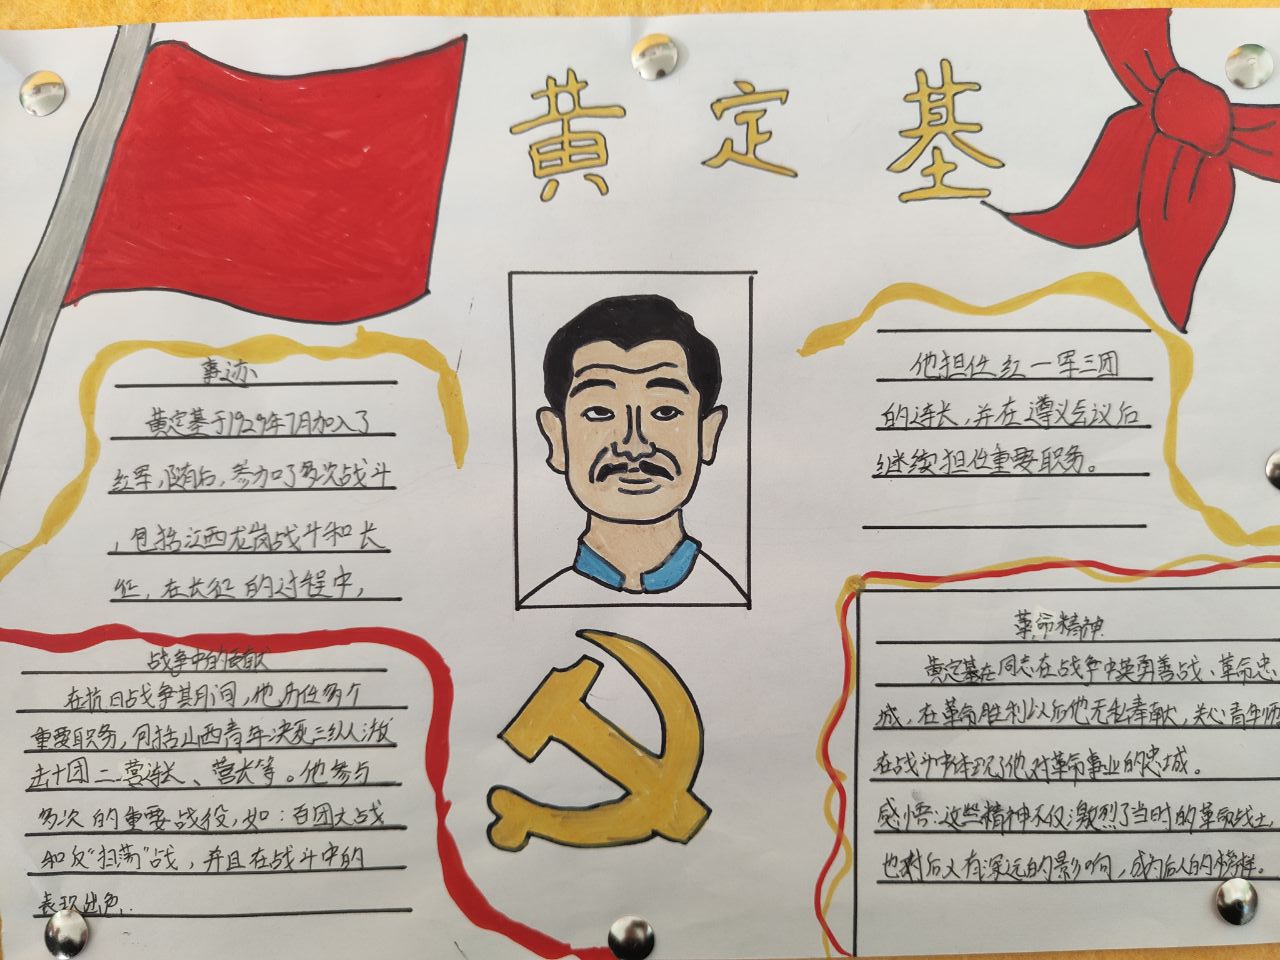 黄定基
事迹
黄定基于1929年7月加入了
红军,随后,参加了多次战斗
,包括江西龙岗战斗和长
征,在长征的过程中,
他担任红一军三团
的连长,并在遵义会议后
继续担任重要职务。
战争中的贡献
在抗日战争其月间,他历任多个
重要职务,包括山西青年决死三纵从游
击十团二营连长、营长等。他参与
多次的重要战役,如:百团大战
和反"扫荡"战,并且在战斗中的
表现出色.
革命精神
黄定基在同志在战争中英勇善战、革命忠
城,在革命胜利以后他无私奉献,关心青年师
在战斗中体现了他对革命事业的忠城。
感悟:这些精神不仅激烈了当时的革命战士,
也对后人有深远的影响,成为后人的榜样。